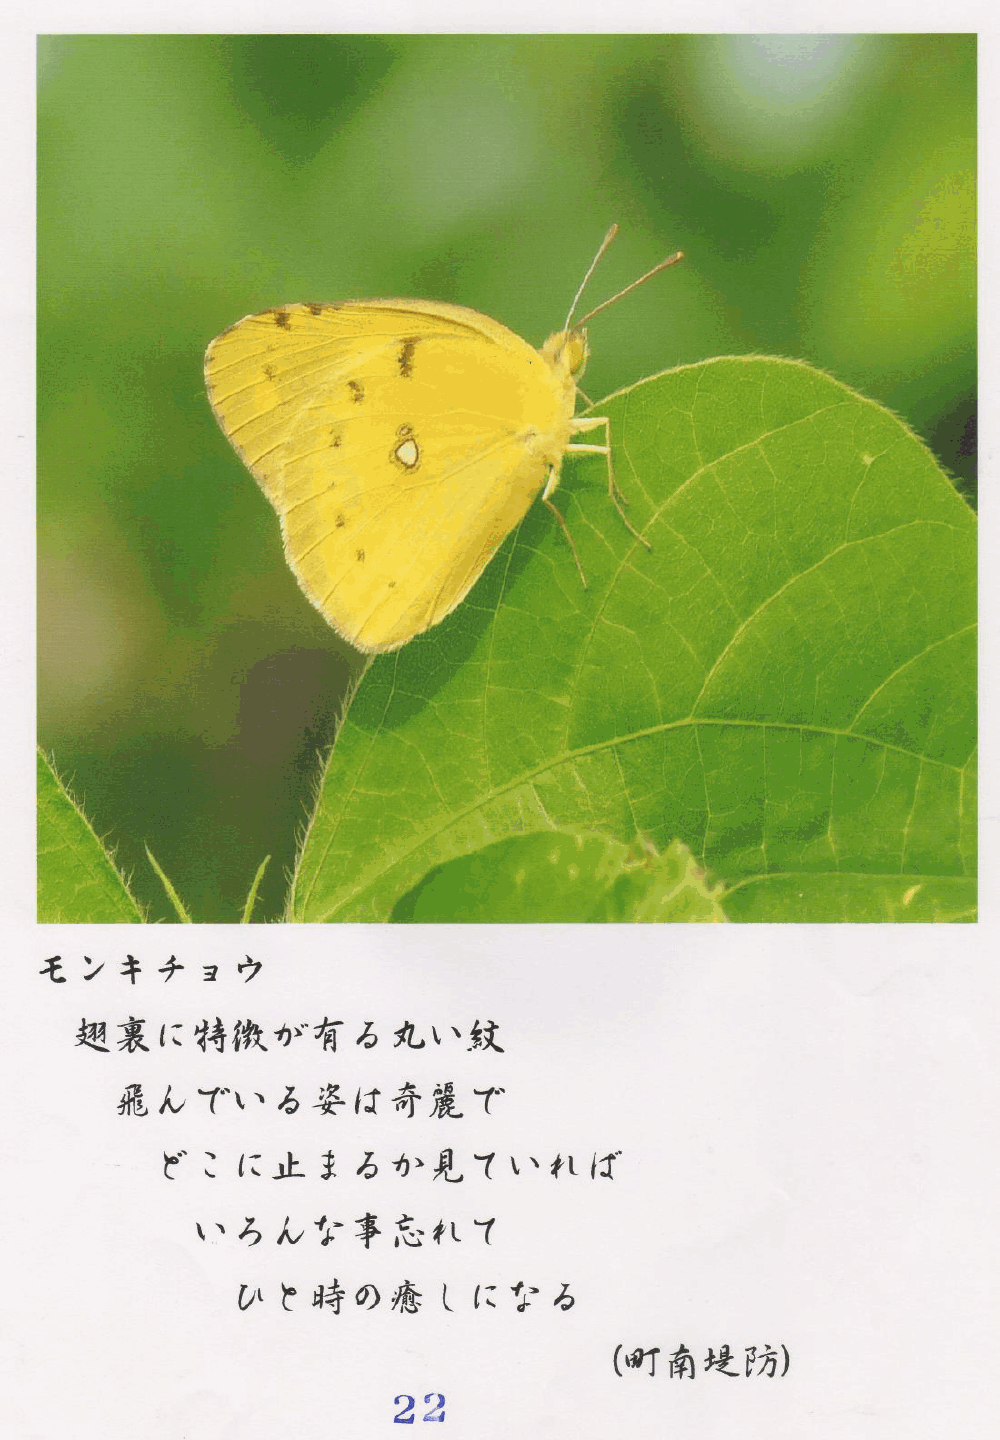 モンキチョウ
翅裏に特徴が有る丸い紋
飛んでいる姿は奇麗で
どこに止まるか見ていれば
いろんな事忘れて
ひと時の癒しになる
(町南堤防)
22